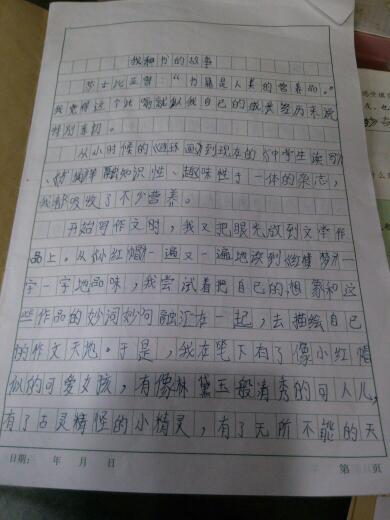 我和书的故事
莎士比亚曾:“书籍是人类的营养品。”
我觉得这个比喻就从我自己的成长经历来说
特别亲切。
从小时候的《连环画》到现在的《中学生读
融知识性、趣味性于一体的杂志,
我都吸收了不少营养。
开始写作文时,我又把眼光放到文学作
品上。从《小红帽》一遍又一遍地读到《红楼梦》一
字一字地品味,我尝试着把自己的想象和这
些作品的妙词妙句融汇在一起,去描绘自己
的作文天地。于是,我在笔下有了像小红帽
似的可爱女孩,有像林黛玉般清秀的可人儿,
有了古灵精怪的小精灵,有了无所不能的天
日期: 年 月 日 第 页